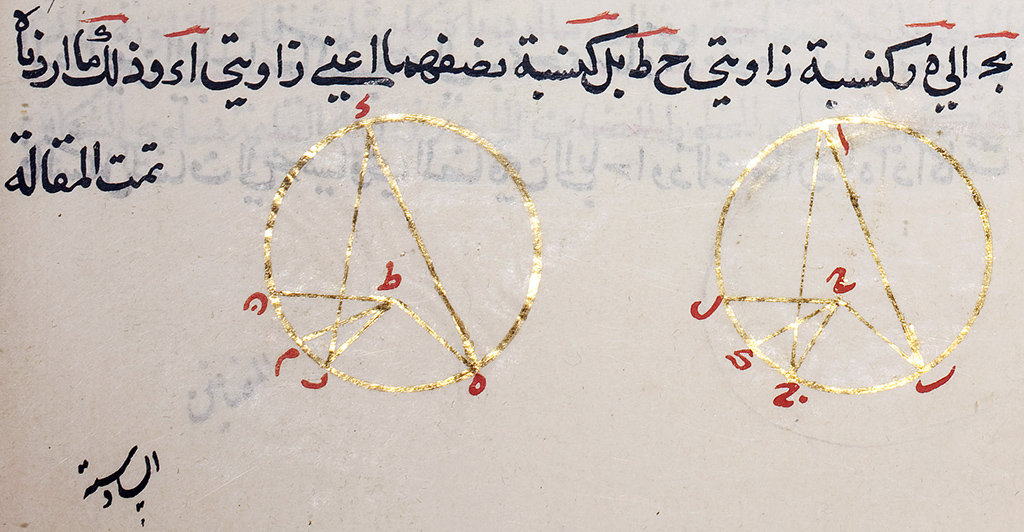 بج الي هر كنسبة زاويتي ح ط بل كنسبة نصفهما اعني زاويتي ا ء وذلك ما اردناه
تمت المقالة
ا
ء
ح
ل
ط
ن
ك
ج
ب
م
ر
ه
السادسة